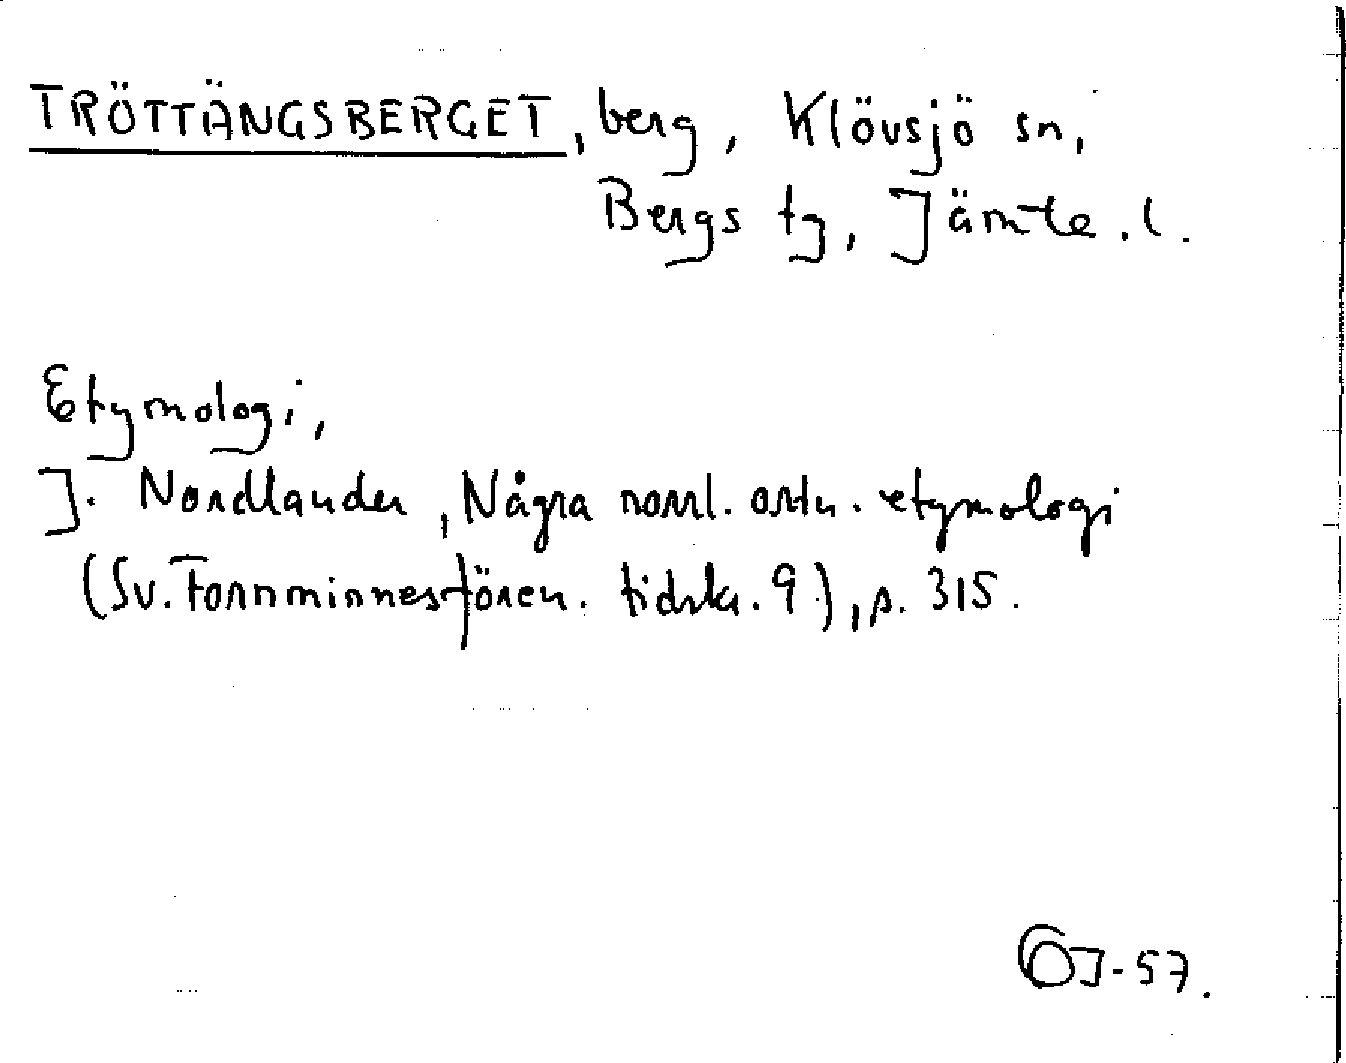 TRÖTTÄNGSBERGET, berg, Klövsjö sn,
Bergs tg, Jämtl. l.
Etymologi,
J. Nordlander, Några norrl. ortn. etymologi
(Sv. Fornminnesfören. tidskr. 9.), s. 315.
OJ-57.